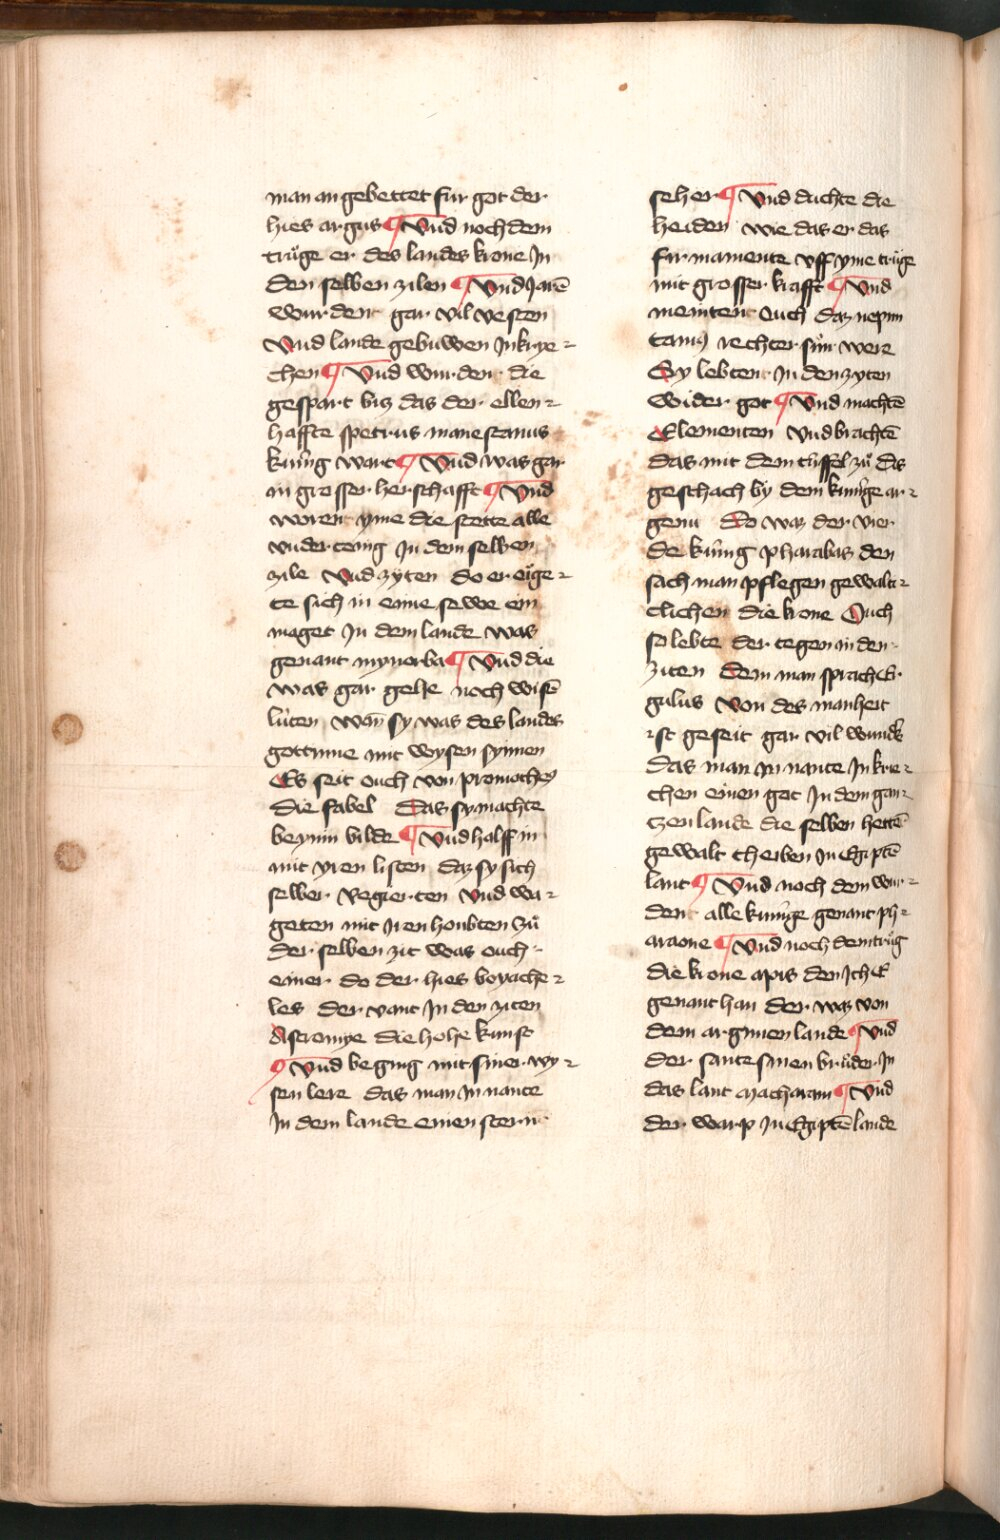 man an gebettet fur got der
hies argus ¶ Vnd noch dem
truͦge er des landes krone Jn
den selben zilen ¶ Vnd Jarē
wurdent gar vil vesten
Vnd lande gebuwen Jn krye⸗
chen ¶ Vnd wurdent die
gespart biz das der ellen⸗
haffte spetrus manestanus
kúnig wart ¶ Vnd was gar
in grosser herschafft ¶ Vnd
worent yme die stette alle
vndertenig Jn dem selben
zile Vnd zyten do er oͤige⸗
te sich in eime sewe ein
maget Jn dem lande was
genant mynerba ¶ Vnd die
was gar gelhe noch wisē
lúten wan sy was des landes
gottinne mit wysen synnen
Es seit ouch von promothey
die fabel Das sy machte
beynin bilde ¶ Vnd halff in
mit yren listen daz sy sich
selber Regierten Vnd wa⸗
geten mit Jren houbten Zuͦ
der selben zit was ouch⸗
einer do der hies boyache⸗
les der vant Jn den ziten
Astromye die hohe kunst
¶ Vnd beging mit siner wy⸗
sen lere das man Jn nante
Jn dem lande einen stern
seher ¶ Vnd duchte die
heiden wie das er das
firmamente vff yme truͦge
mit grosser krafft ¶ Vnd
meintent Ouch daz nepun
tanus rechter sún were
Sy lebtent Jn den zyten
wider got ¶ Vnd machtē
Elementen Vnd brachtē
das mit dem tuͥffel zuͦ Dis
geschach by dem kúnige ar⸗
genu Do waz der vier
de kúnig pharabas den
sach man pflegen gewalt⸗
clichen die krone Ouch
so lebte der tegen in den
ziten Dem man sprach Er⸗
gulus Von des manheit
ist geseit gar vil wunders
das man Jn nante Jn krie⸗
chen einen got Jn dem gan⸗
tzen lande die selben hettē
gewalt theiben Jn Egiptē
lant ¶ Vnd noch dem wur⸗
dent alle kúnige genant ph⸗
araone ¶ Vnd noch dem truͦg
die krone apis den Jch E
genant han der waz von
dem arginen lande ¶ Vnd
der sante sinen bruͦder Jn
das lant Macharam ¶ Vnd
der warp Jn Egiptē lande